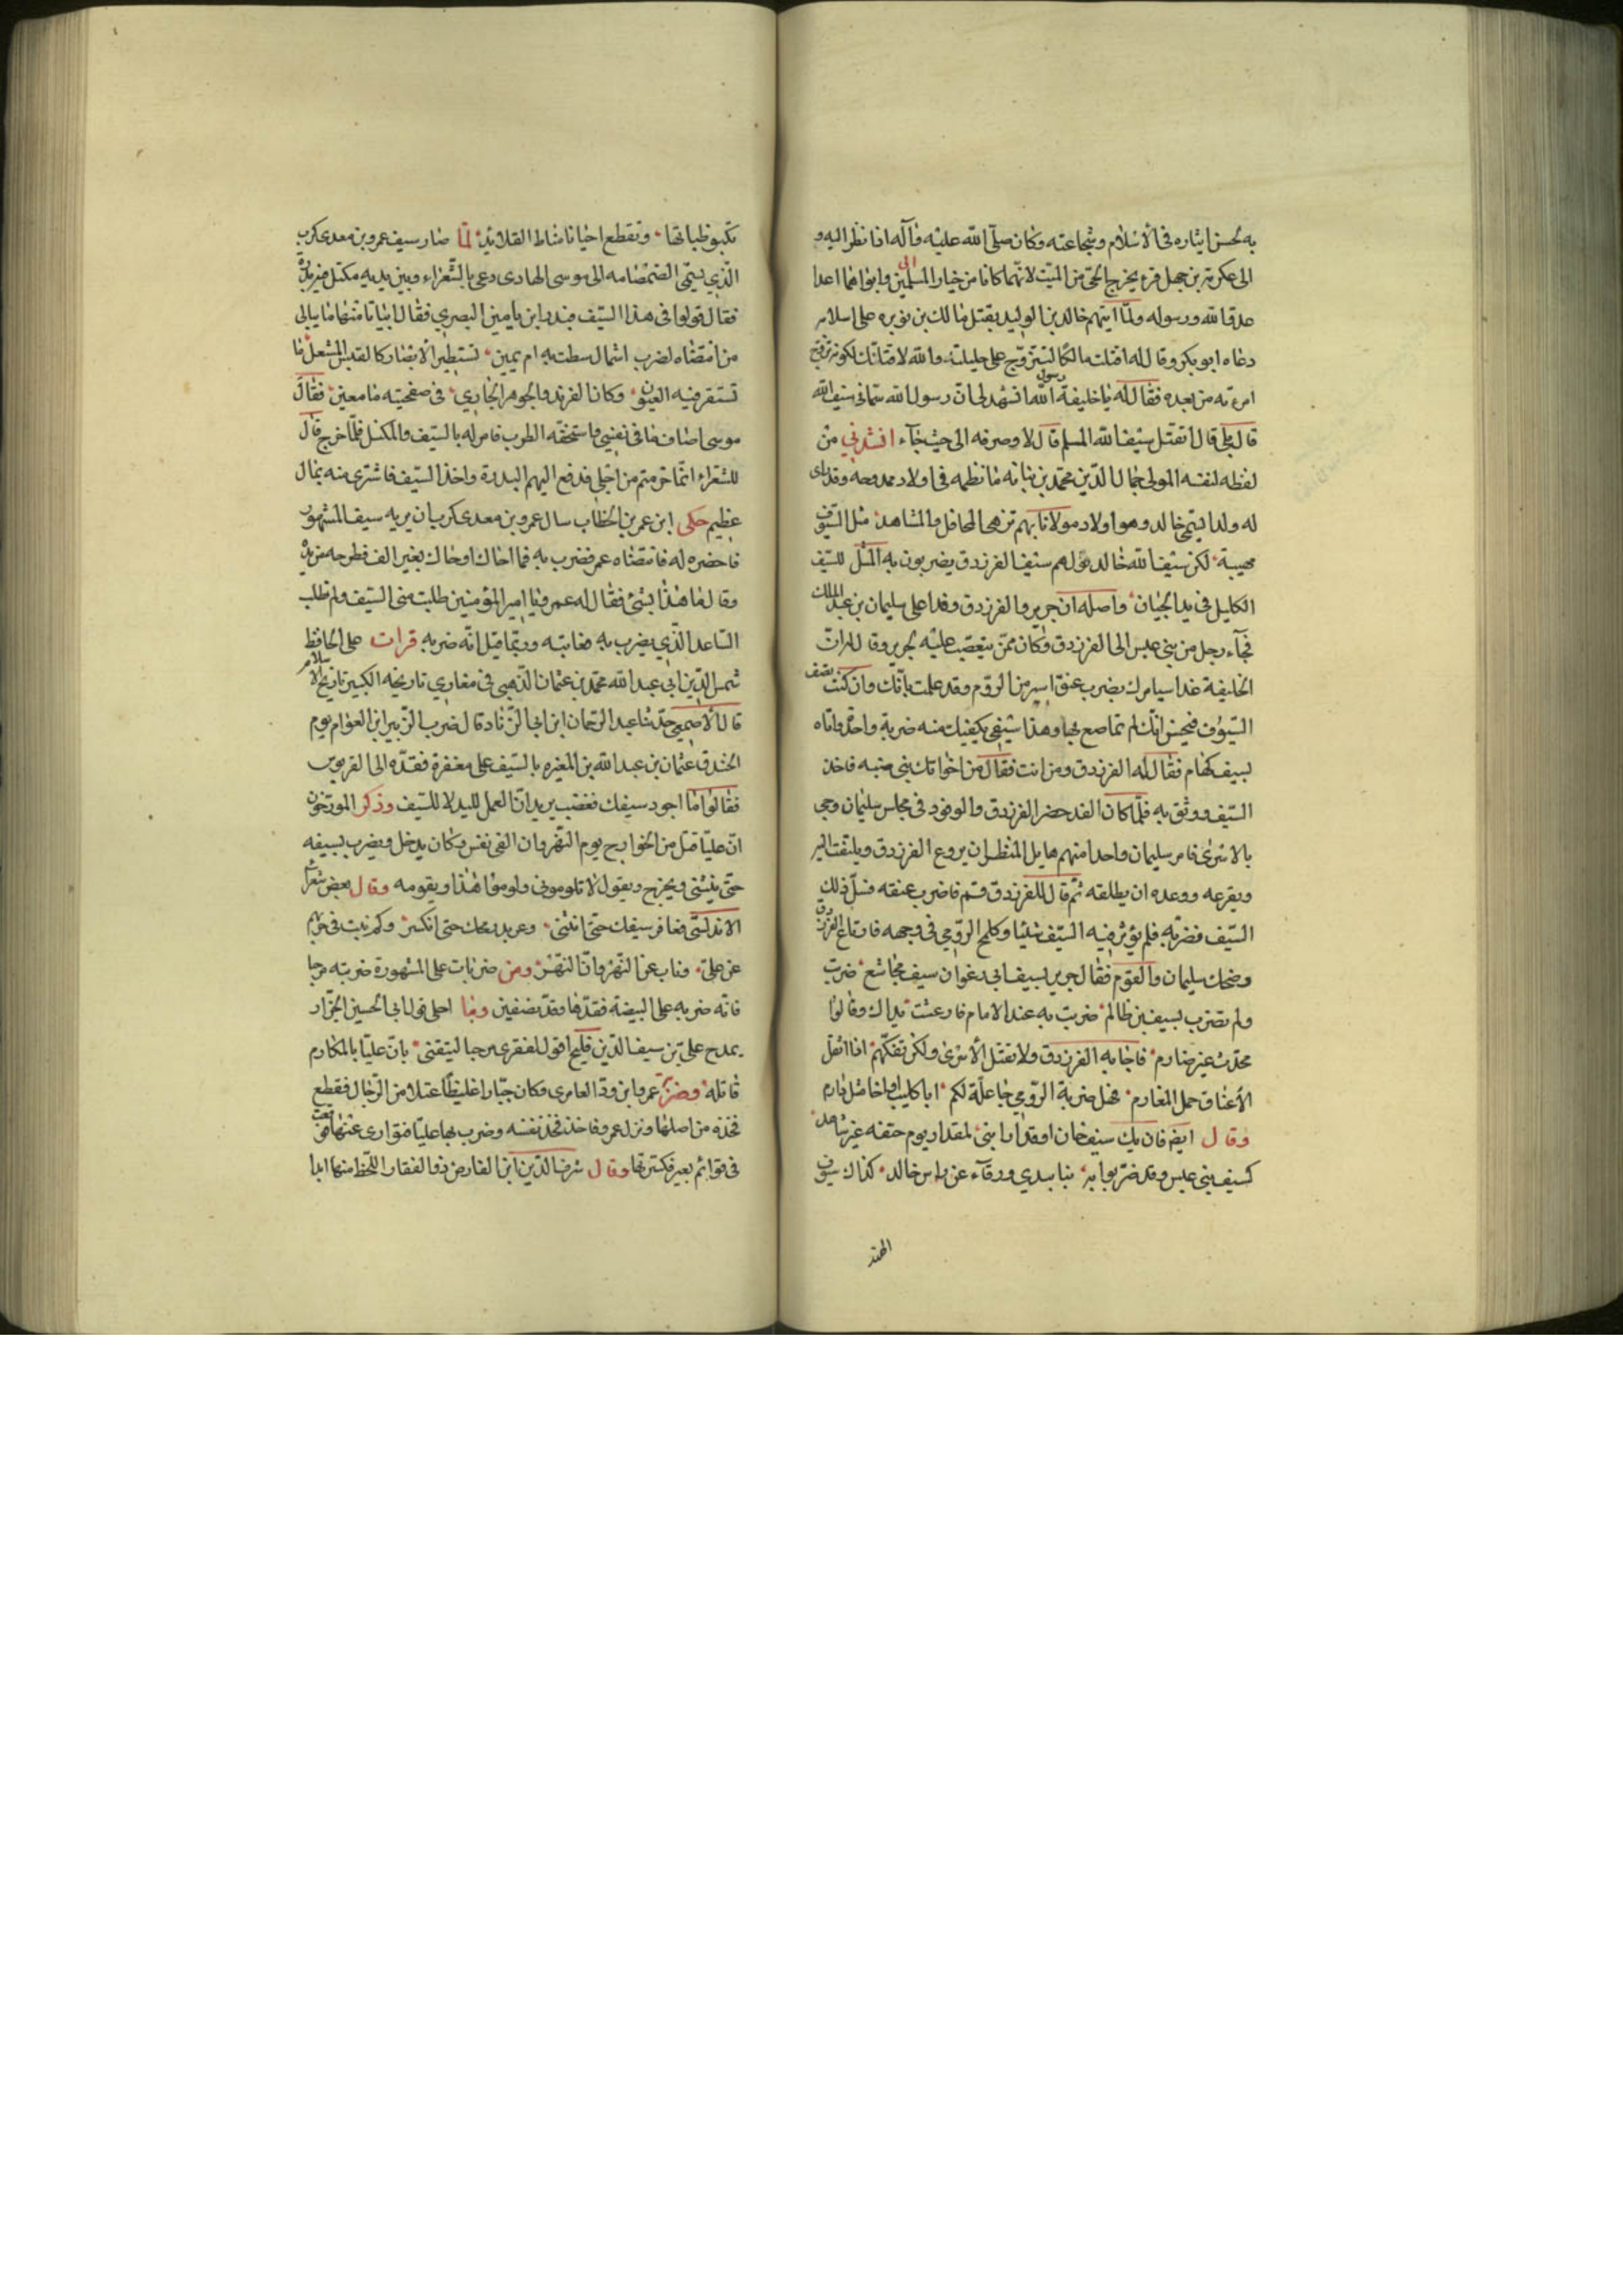 به لحسن ايثاره فى الاسلام وشجاعته وكان صلى الله عليه وآله اذا نظر اليه و
الى عكرمة بن جهل قرء يخرج الحى من الميت لانهما كانا من خيار المسلمين وابواهما اعدا
عدو الله ورسوله ولما اتهم خالد بن الوليد بقتل مالك بن نويره على اسلامه
دعاه ابو بكر وقال له اقتلت مالكا لتتزوج على حليلته والله لاقتلنك لكونه تزوج
امرءته من بعده فقال له يا خليفة رسول الله انشهد لى ان رسول الله سمانى سيف الله
قال بلى قال أتقتل سيف الله المسلم قال لا وصرفه الى حيث جآء انشدني من
لفظه لنفسه المولى جمال الدين محمد بن نباته ما نظمه فى اولاد ممدوحه وقد راى
له ولدا يسمى خالد وهو اولاد مولانا بهم تزهى المحافل والمشاهد مثل السيوف
مهيبة لكن سيف الله خالد قولهم سيف الفرزدق يضربون به المثل للسيف
الكليل فى يد الجبان واصله ان جرير والفرزدق وفدا على سليمان بن عبد الملك
فجآء رجل من بنى عبس الى الفرزدق وكان ممن يتعصب عليه لجرير وقال له ان
الخليفة غدا سيامرك بضرب عنق اسير من الروم وقد علمت بانك وان كنت تصف
السيوف فتحسن انك لم تماصع بها وهذا سيفي يكفيك منه ضربة واحدة واتاه
بسيف كهام فقال له الفرزدق ومن انت فقال من اخوانك بنى ضبه فاخذ
السيف ووثق به فلما كان الغد حضر الفرزدق والوفود فى مجلس سليمان وجى
بالاسرى فامر سليمان واحدا منهم هايل المنظر ان يروع الفرزدق ويلتفت اليه
ويفزعه ووعده ان يطلقه ثم قال للفرزدق قم فاضرب عنقه فسل ذلك
السيف فضربه فلم يؤثر فيه السيف شيئا وكلح الرومي فى وجهه فارتاع الفرزدق
وضحك سليمان والقوم فقال جرير بسيف ابى رغوان سيف مجاشع ضربت
ولم تضرب بسيف بن ظالم ضربت به عند الامام فارعشت يداك وقالوا
محدث غير صارم فاجابه الفرزدق ولا نقتل الاسرى ولكن نفكهم اذا اثقل
الأعناق حمل المغارم فهل ضربة الرومي جاعلة لكم ابا كليب او اخا مثل دارم
وقال ايضا فان يك سيف خان او قدر ابى لمقدار يوم حتفه غير شاهد
كسيف بنى عبس وقد ضربوا به نبا بيدي ورقآء عن راس خالد كذاك سيوف
الهند
تكبو ظباتها وتقطع احيانا مناط القلائد لما صار سيف عمرو بن معدى كرب
الذي يسمى الصمصامه الى موسى الهادى دعى بالشعراء وبين يديه مكتل فيه بدرة
فقال قولوا فى هذا السيف فبدر ابن يامين البصري فقال ابياتا منها ما يبالى
من انتضاه لضرب اشمال سطت به ام يمين تستطير الابصار كالقبس المشعل ما
تستقر فيه العيون وكان الفرند والجوهر الجاري فى صفحتيه ما معين فقال
موسى اصاف ما فى نفسي واستخفه الطرب فامر له بالسيف والمكتل فلما خرج قال
للشعراء انما حرمتم من اجلى فدفع اليهم البدرة واخذ السيف فاشترى منه بمال
عظيم حكى ابن عمر بن الخطاب سال عمرو بن معدى كرب ان يريه سيفه المشهور
فاحضره له فانتضاه عمر فضرب به فما احاك فطرحه من يده
وقال ما هذا بشئ فقال له عمرو يا امير المؤمنين طلبت منى السيف ولم تطلب
الساعد الذي يضرب به فعاتبه وربما قيل انه ضربه قرات على الحافظ
شمس الدين ابى عبد الله محمد بن عثمان الذهبى فى مغازي تاريخه الكبير تاريخ الاسلام
قال الاصمعي حدثنا عبد الرحمان ابن ابى الزناد قال ضرب الزبير ابن العوام يوم
الخندق عثمان بن عبد الله بن المغيره بالسيف على مغفرة فقده الى القربوس
فقالوا ما اجود سيفك فغضب يريد ان العمل لليد لا للسيف وذكر المورخون
ان عليا قتل من الخوارج يوم النهروان الفى نفس وكان يدخل ويضرب بسيفه
حتى ينثنى ويخرج ويقول لا تلومونى ولوموا هذا ويقومه وقال بعض شعراء
الاندلسى فعاقر سيفك حتى انثنى وعربد رمحك حتى انكسر وكم نبت فى حربهم
عن على وناب عن النهروان النهر ومن ضربات على المشهورة ضربته مرحبا
فانه ضربه على البيضة فقدها وقده نصفين وما احلى قول ابى الحسين الجزار
يمدح على بن سيف الدين قليج اقول لفقرى مرحبا لتيقنى بان عليا بالمكارم
قاتله وضربه عمرو ابن ود العامرى وكان جبارا غليظا عتلا من الرجال فقطع
فخذه من اصلها ونزل عمرو فاخذ فخذ نفسه وضرب بها عليا فتوارى عنها فوقعت
فى قوائم بعير فكسرتها وقال شرف الدين ابن الفارض ذو الفقار اللحظ منها ابدا